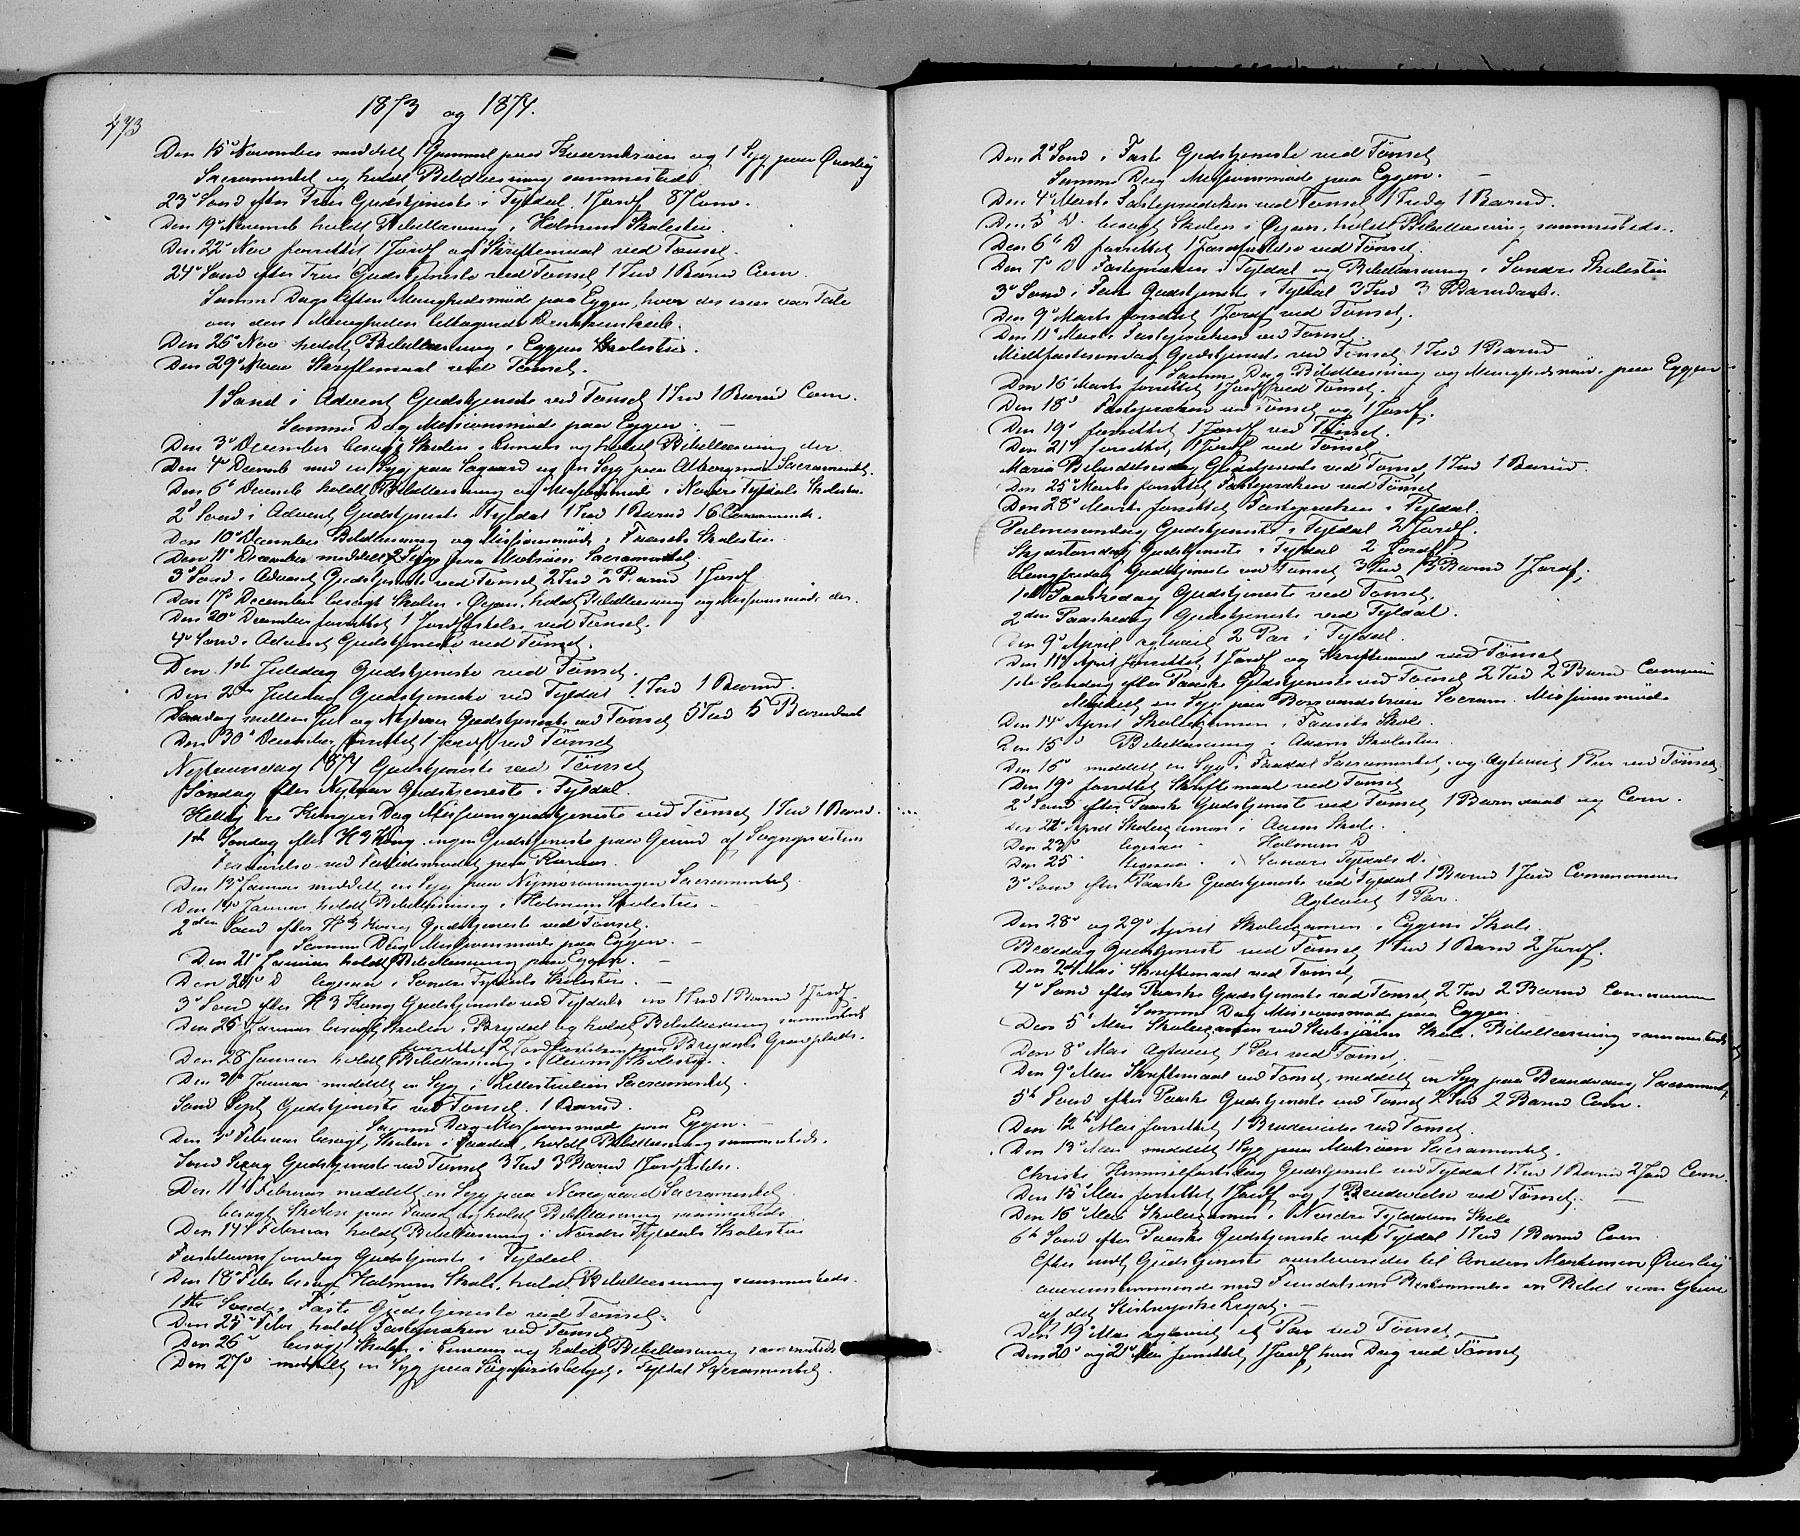 473
1873 og 1874.
Den 15de November meddelt 1 Gammel paa Kvernbroen og 1 Syg paa Øverby
Sacramentet og holdt Bibellæsning sammesteds.
23de Sønd efter Trin Gudstjeneste i Tyldal. 1 Jordf 87 Com.
Den 19de Novemb holdt Bibellæsning i Holmen Skolestue.
Den 22de Nov forrettet 1 Jordf og Skriftemaal ved Tønset.
24de Sønd efter Trin Gudstjeneste ved Tønset 1 Ind 1 Barned Com.
Samme Dags Aften Menighedsmøde paa Eggen, hvor der især var Tale
om den i Menigheden tiltagende Drukkenskab.
Den 26de Nov holdt Bibellæsning i Eggens Skolestue.
Den 29de Novr Skriftemaal ved Tønset.
1 Sønd i Advent Gudstjeneste ved Tønset 1 Ind 1 Barned Com.
Samme Dag Missionsmøde paa Eggen. —
Den 3de December besøgt Skolen i og holdt Bibellæsning der.
Den 4de Decemb med en Syg paa Aagaard og en Syg paa Sacramentet.
Den 6te Decemb holdt Bibellæsning og Missionsmøde i Nordre Tyldals Skolestue.
2den Sønd i Advent Gudstjeneste i Tyldal 1 Ind 1 Barned 16 Communik.
Den 10de December Bibellæsning og Missionsmøde i Faasets Skolestue.
Den 11te December meddelt 2 Syge paa Moskøien Sacramentet. —
3de Sønd i Advent Gudstjeneste ved Tønset 2 Ind 2 Barned 1 Jordf
Den 17de December besøgt Skolen i Øien, holdt Bibellæsning og Missionsmøde der.
Den 20de December forrettet 1 Jordfæstelse ved Tønset.
4de Sønd i Advent Gudstjeneste ved Tønset.
Den 1ste Juledag Gudstjeneste ved Tønset.
Den 2den Juledag Gudstjeneste ved Tyldal 1 Ind 1 Barned
Søndag mellem Jul og Nytaar Gudstjeneste ved Tønset 5 Ind 5 Barnedaab
Den 30te December forrettet 1 Jordf ved Tønset
Nytaarsdag 1874 Gudstjeneste ved Tønset
Søndag efter Nytaar Gudstjeneste i Tyldal.
Hellig tre Kongers Dag Missionsgudstjeneste ved Tønset 1 Ind 1 Barned.
1ste Søndag efter H 3 Kong. ingen Gudstjeneste paa Grund af Sognepræstens
ved paa Røraas.
Den 13de Januar meddelt en Syg paa Sacramentet.
Den 14de Januar holdt Bibellæsning i Holmens Skolestue —
2den Sønd efter H 3 Kong Gudstjeneste ved Tønset.
Samme Dag Missionsmøde paa Eggen. —
Den 21de Januar holdt Bibellæsning paa Eggen. —
Den 24de D ligesaa i Søndre Tyldals Skolestue. —
3de Sønd efter H 3 Kong Gudstjeneste ved Tyldals 1 Ind 1 Barned 1 Jordf.
Den 26de Januar besøgt Skolen i Brydal og holdt Bibellæsning sammesteds
forrettet 2 Jordfæstelser paa Brydals Gravplads.
Den 28de Januar holdt Bibellæsning i Aaens Skolestue.
Den 30te Januar meddelt en Syg i Sacramentet.
Sønd Sept Gudstjeneste ved Tønset. 1 Barned.
Samme Dag Missionsmøde paa Eggen. —
Den 3de Februar besøgt Skolen i Faadal, holdt Bibellæsning sammesteds.
Sønd Sexag Gudstjeneste ved Tønset 3 Ind 3 Barned 1 Jordfæstelse.
Den 11te Februar meddelt en Syg paa Norgaard Sacramentet
besøgt Skolen paa Faaset og holdt Bibellæsning sammesteds.
Den 14de Februar holdt Bibellæsning i Nordre Tyldals Skolestue
Fastelavns søndag Gudstjeneste i Tyldal.
Den 18de Febr besøgt Holmens Skole, holdt Bibellæsning sammesteds.
1ste Sønd i Faste Gudstjeneste ved Tønset.
Den 25de Febr holdt Fasteprædiken ved Tønset
Den 26de besøgt Skolen i og holdt Bibellæsning sammesteds
Den 27de meddelt en Syg paa i Tyldal Sacramentet.
Den 2den Sønd i Faste Gudstjeneste ved Tønset
Samme Dag Missionsmøde paa Eggen. —
Den 4de Marts Fasteprædiken ved Tønset 1 Ind 1 Barned.
Den 5te D. besøgt Skolen i Øien, holdt Bibellæsning sammesteds.
Den 6te D forrettet 1 Jordfæstelse ved Tønset.
Den 7de D Fasteprædiken i Tyldal og Bibellæsning i Søndre Skolestue
3de Sønd i Faste Gudstjeneste i Tyldal 3 Ind 3 Barnedaab.
Den 9de Marts forrettet 1 Jordf ved Tønset.
Den 11te Marts Fasteprædiken ved Tønset
Midfastesøndag Gudstjeneste ved Tønset 1 Ind 1 Barned
Samme Dag Bibellæsning og Menighedsmøde paa Eggen
Den 16de Marts forrettet 1 Jordf ved Tønset.
Den 18de Fasteprædiken ved Tønset og 1 Jordf.
Den 19de forrettet 1 Jordf ved Tønset.
Den 21de forrettet 1 Jordf ved Tønset
Maria Bebudelsesdag Gudstjeneste ved Tønset 1 Ind 1 Barned.
Den 25de Marts forrettet Fasteprædiken ved Tønset
Den 28de Marts forrettet Fasteprædiken i Tyldal.
Palmesøndag Gudstjeneste i Tyldal 2 Jordf.
Skjærtorsdag Gudstjeneste i Tyldal 2 Jordf.
Langfredag Gudstjeneste ved Tønset 3 Ind 3 Barned 1 Jordf.
1ste Paaskedag Gudstjeneste ved Tønset.
2den Paaskedag Gudstjeneste ved Tyldal.
Den 9de April egteviet 2 Par i Tyldal.
Den 11te April forrettet 1 Jordf og Skriftemaal ved Tønset
1ste Søndag efter Paaske Gudstjeneste ved Tønset 2 Ind 2 Barned Commun
Meddelt en Syg paa Sacram. Missionsmøde
Den 14de April Skoleexamen i Faasets Skole.
Den 15de Bibellæsning i Aaens Skolestue
Den 16de meddelt en Syg i Faadal Sacramentet, og egteviet 1 Par ved Tønset
Den 19de forrettet Skriftemaal ved Tønset
2den Sønd efter Paaske Gudstjeneste ved Tønset 1 Barnedaab og Com.
Den 22de April Skoleexamen i Aaens Skole.
Den 23de ligesaa — Holmens D
Den 25 ligesaa i Søndre Tyldals D.
3de Sønd efter Paaske Gudstjeneste ved Tyldal 1 Barned 1 Jord Communion
Egteviet 1 Par.
Den 28de og 29de April Skoleexamen i Eggens Skole.
Bededag Gudstjeneste ved Tønset 1 Ind 1 Barned 2 Jordf.
Den 2den Mai Skriftemaal ved Tønset
4de Sønd efter Paaske Gudstjeneste ved Tønset 2 Ind 2 Barned Communion
Samme Dag Missionsmøde paa Eggen.
Den 5te Mai Skoleexamen ved Skole. Bibellæsning sammesteds
Den 8de Mai Egteviet 1 Par ved Tønset.
Den 9de Mai Skriftemaal ved Tønset, meddelt en Syg paa Brandvang Sacramentet
5te Sønd efter Paaske Gudstjeneste ved Tønset 2 Ind 2 Barned Com.
Den 12te Mai forrettet 1 Brudevielse ved Tønset.
Den 13de Mai meddelt 1 Syg paa Moskøien Sacramentet.
Christi Himmelfartsdag Gudstjeneste ved Tyldal 1 Ind 1 Barned 2 Jord Com.
Den 15de Mai forrettet 1 Jordf og 1 Brudevielse ved Tønset. —
Den 16de Mai Skoleexamen i Nordre Tyldalens Skole
6te Sønd efter Paaske Gudstjeneste ved Tyldal 1 Ind 1 Barned Com
Efter endt Gudstjeneste overleveredes til Anders Mortensen Øverby
overensstemmende med Fundatsens Bestemmelse en Bibel som Gave
af det Legat. —
Den 19de Mai egteviet et Par ved Tønset
Den 20de og 21de Mai forrettet 1 Jordf, hver Dag ved Tønset